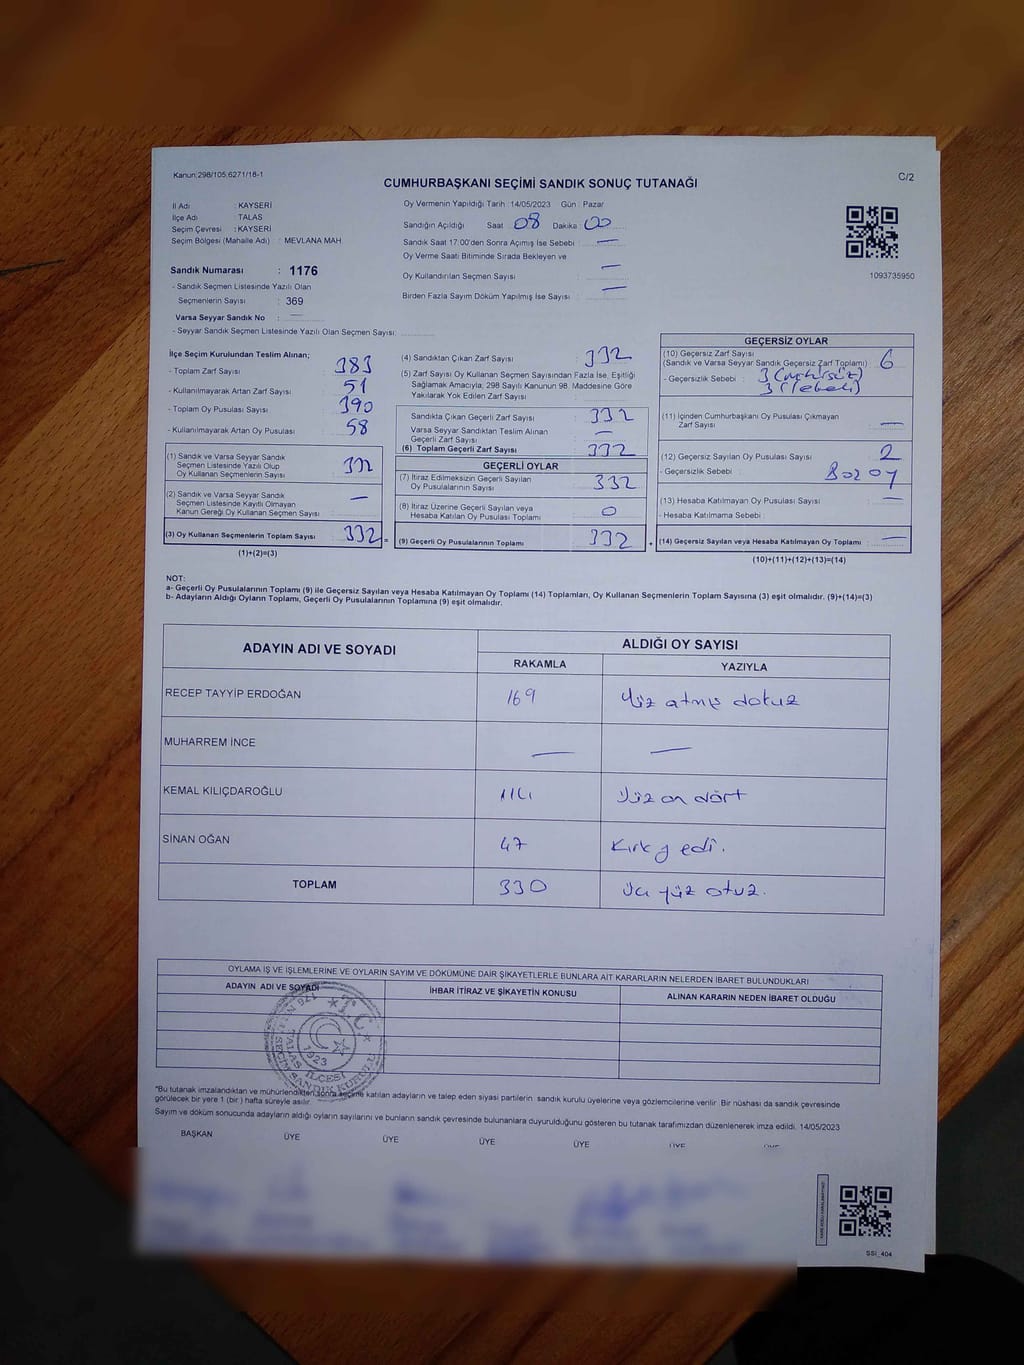 Kanun:298/105,6271/16-1
C/2
CUMHURBAŞKANI SEÇİMİ SANDIK SONUÇ TUTANAĞI
İl Adı : KAYSERİ
İlçe Adı : TALAS
Seçim Çevresi : KAYSERİ
Seçim Bölgesi (Mahalle Adı) : MEVLANA MAH
Sandık Numarası : 1176
- Sandık Seçmen Listesinde Yazılı Olan
Seçmenlerin Sayısı : 369
Varsa Seyyar Sandık No : —
- Seyyar Sandık Seçmen Listesinde Yazılı Olan Seçmen Sayısı:
Oy Vermenin Yapıldığı Tarih :14/05/2023 Gün : Pazar
Sandığın Açıldığı Saat 08 Dakika 00
Sandık Saat 17:00'den Sonra Açımış İse Sebebi : —
Oy Verme Saati Bitiminde Sırada Bekleyen ve
Oy Kullandırılan Seçmen Sayısı : —
Birden Fazla Sayım Döküm Yapılmış İse Sayısı : —
1093735950
İlçe Seçim Kurulundan Teslim Alınan;
- Toplam Zarf Sayısı : 383
- Kullanılmayarak Artan Zarf Sayısı : 51
- Toplam Oy Pusulası Sayısı : 390
- Kullanılmayarak Artan Oy Pusulası : 58
(1) Sandık ve Varsa Seyyar Sandık
Seçmen Listesinde Yazılı Olup
Oy Kullanan Seçmenlerin Sayısı : 332
(2) Sandık ve Varsa Seyyar Sandık
Seçmen Listesinde Kayıtlı Olmayan
Kanun Gereği Oy Kullanan Seçmen Sayısı : —
(3) Oy Kullanan Seçmenlerin Toplam Sayısı : 332
(1)+(2)=(3)
(4) Sandıktan Çıkan Zarf Sayısı : 332
(5) Zarf Sayısı Oy Kullanan Seçmen Sayısından Fazla İse, Eşitliği
Sağlamak Amacıyla; 298 Sayılı Kanunun 98. Maddesine Göre
Yakılarak Yok Edilen Zarf Sayısı :
Sandıkta Çıkan Geçerli Zarf Sayısı : 332
Varsa Seyyar Sandıktan Teslim Alınan
Geçerli Zarf Sayısı : —
(6) Toplam Geçerli Zarf Sayısı : 332
GEÇERLİ OYLAR
(7) İtiraz Edilmeksizin Geçerli Sayılan
Oy Pusulalarının Sayısı : 332
(8) İtiraz Üzerine Geçerli Sayılan veya
Hesaba Katılan Oy Pusulası Toplamı : 0
(9) Geçerli Oy Pusulalarının Toplamı : 332
GEÇERSİZ OYLAR
(10) Geçersiz Zarf Sayısı
(Sandık ve Varsa Seyyar Sandık Geçersiz Zarf Toplamı) : 6
- Geçersizlik Sebebi : 3 (mühürsüz)
3
(11) İçinden Cumhurbaşkanı Oy Pusulası Çıkmayan
Zarf Sayısı : —
(12) Geçersiz Sayılan Oy Pusulası Sayısı : 2
- Geçersizlik Sebebi : Boz oy
(13) Hesaba Katılmayan Oy Pusulası Sayısı : —
- Hesaba Katılmama Sebebi :
(14) Geçersiz Sayılan veya Hesaba Katılmayan Oy Toplamı : —
(10)+(11)+(12)+(13)=(14)
NOT:
a- Geçerli Oy Pusulalarının Toplamı (9) ile Geçersiz Sayılan veya Hesaba Katılmayan Oy Toplamı (14) Toplamları, Oy Kullanan Seçmenlerin Toplam Sayısına (3) eşit olmalıdır. (9)+(14)=(3)
b- Adayların Aldığı Oyların Toplamı, Geçerli Oy Pusulalarının Toplamına (9) eşit olmalıdır.
ADAYIN ADI VE SOYADI ALDIĞI OY SAYISI
RAKAMLA YAZIYLA
RECEP TAYYİP ERDOĞAN 169 Yüz atmış dokuz
MUHARREM İNCE — —
KEMAL KILIÇDAROĞLU 114 Yüz on dört
SİNAN OĞAN 47 Kırk yedi.
TOPLAM 330 Üç yüz otuz.
OYLAMA İŞ VE İŞLEMLERİNE VE OYLARIN SAYIM VE DÖKÜMÜNE DAİR ŞİKAYETLERLE BUNLARA AİT KARARLARIN NELERDEN İBARET BULUNDUKLARI
ADAYIN ADI VE SOYADI İHBAR İTİRAZ VE ŞİKAYETİN KONUSU ALINAN KARARIN NEDEN İBARET OLDUĞU
T.C.
1923
TALAS İLÇESİ
"Bu tutanak imzalandıktan ve mühürlendikten sonra seçime katılan adayların ve talep eden siyasi partilerin sandık kurulu üyelerine veya gözlemcilerine verilir. Bir nüshası da sandık çevresinde
görülecek bir yere 1 (bir ) hafta süreyle asılır.
Sayım ve döküm sonucunda adayların aldığı oyların sayılarını ve bunların sandık çevresinde bulunanlara duyurulduğunu gösteren bu tutanak tarafımızdan düzenlenerek imza edildi. 14/05/2023
BAŞKAN ÜYE ÜYE ÜYE ÜYE ÜYE ÜYE
SSİ_404